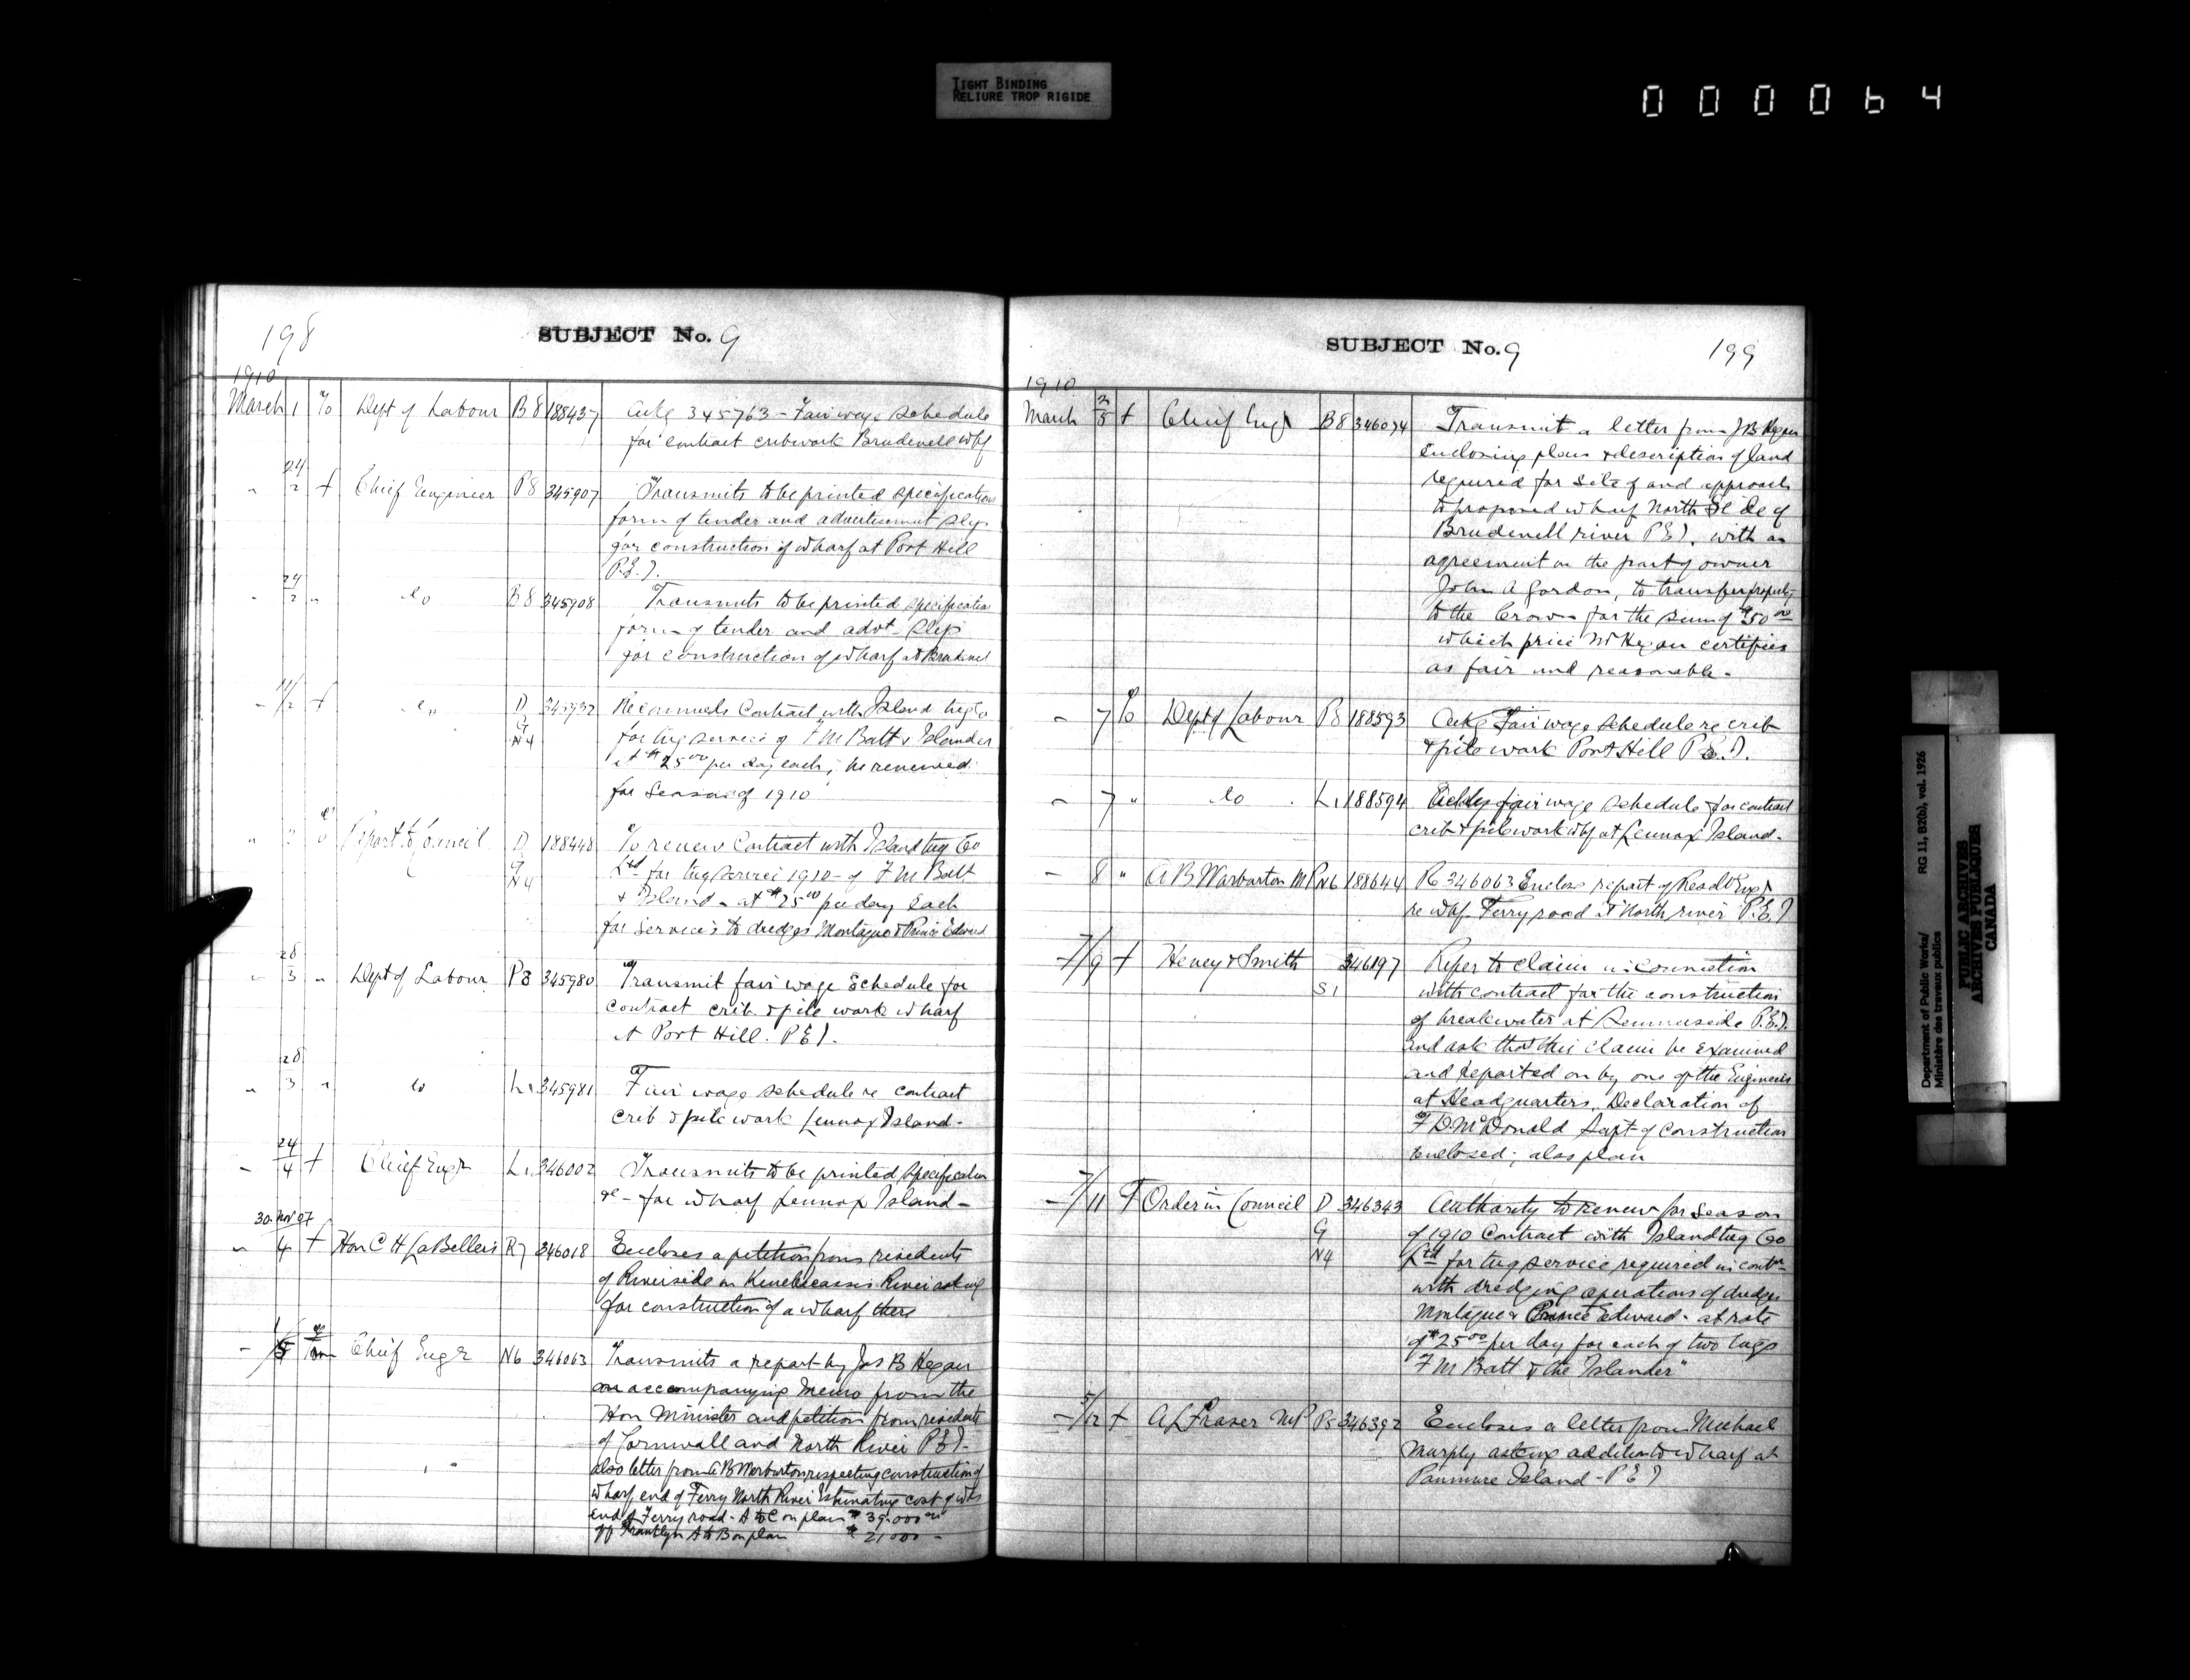 TIGHT BINDING
RELIURE TROP RIGIDE
000064
198
SUBJECT No. 9
1910
March 1 To Dept of Labour B8 188437 Ackg 345763 - Fair wage schedule
for contract cribwork Brudenell whf
" 24/2 f Chief Engineer P8 345907 Transmits to be printed specification
form of tender and advertisement slip
for construction of wharf at Port Hill
P.E.I.
" 24/2 " do B8 345908 Transmits to be printed specification
form of tender and advt slip
for construction of wharf at Brudenel
f do D 345932 Recommends Contract with Island tug Co
G for tug service of F M Batt & Islander
N4 at $25 00 per day each, be renewed
for Season of 1910
" Report to Council D 188448 To renew Contract with Island tug Co
G Ltd for tug service 1910 - of F M Batt
N4 & Island - at $25 00 per day each
for services to dredges Montague & Prince Edward
" 28/3 " Dept of Labour P8 345980 Transmit fair wage Schedule for
contract crib & pile work wharf
at Port Hill. P E I.
" 28/3 " do L1 345981 Fair wage schedule re contract
crib & pile work Lennox Island -
" 24/4 f Chief Engr L1 346002 Transmits to be printed specification
&c - for wharf Lennox Island -
30 Nov 07
" 4 f Hon C H LaBellois R7 346018 Encloses a petition from residents
of Riverside on Kenebecassis River asking
for construction of a wharf there
Chief Engr N6 346063 Transmits a report by Jas B Hegan
on accompanying memo from the
Hon Minister and petition from residents
of Cornwall and North River P E I.
also letter from A B Warburton respecting construction of
wharf end of Ferry North River Estimating cost of whf
end of Ferry road - A to C on plan $39.000 00
A to B on plan $21000 -
SUBJECT No. 9
199
1910
March 3/5 f Chief Engr B8 346074 Transmit a letter from J B Hegan
Enclosing plan & description of land
required for site of and approach
to proposed wharf North Side of
Brudenell river P E I. with an
agreement on the part of owner
John A Gordon, to transfer property
to the Crown for the sum of $50 00
which price Mr Hegan certifies
as fair and reasonable.
- 7 To Dept of Labour P8 188593 Ackg Fair wage schedule re crib
& pile work Port Hill P.E.I.
- 7 " do L1 188594 fair wage schedule for contract
crib & pile work whf at Lennox Island.
- 8 " A B Warburton MP N6 188644 Re 346063 Enclose report of Resdt Engr
re whf Ferry road at North river P.E.I
- 7/9 f Heney & Smith 346197 Refer to claim in connection
S1 with contract for the construction
of breakwater at Summerside P.E.I.
and ask that this claim be examined
and reported on by one of the Engineers
at Headquarters. Declaration of
F D McDonald Supt of Construction
enclosed; also plan
- 7/11 f Order in Council D 346343 Authority to renew for season
G of 1910 Contract with Island tug Co
N4 Ltd for tug service required in contn
with dredging operations of dredges
Montague & Prince Edward - at rate
of $25 00 per day for each of two tugs
F M Batt & the "Islander"
- 5/12 f A L Fraser MP P5 346392 Encloses a letter from Michael
Murphy asking addition to wharf at
Panmure Island - P E I
Department of Public Works/
Ministère des travaux publics
RG 11, B2(b), vol. 1926
PUBLIC ARCHIVES
ARCHIVES PUBLIQUES
CANADA